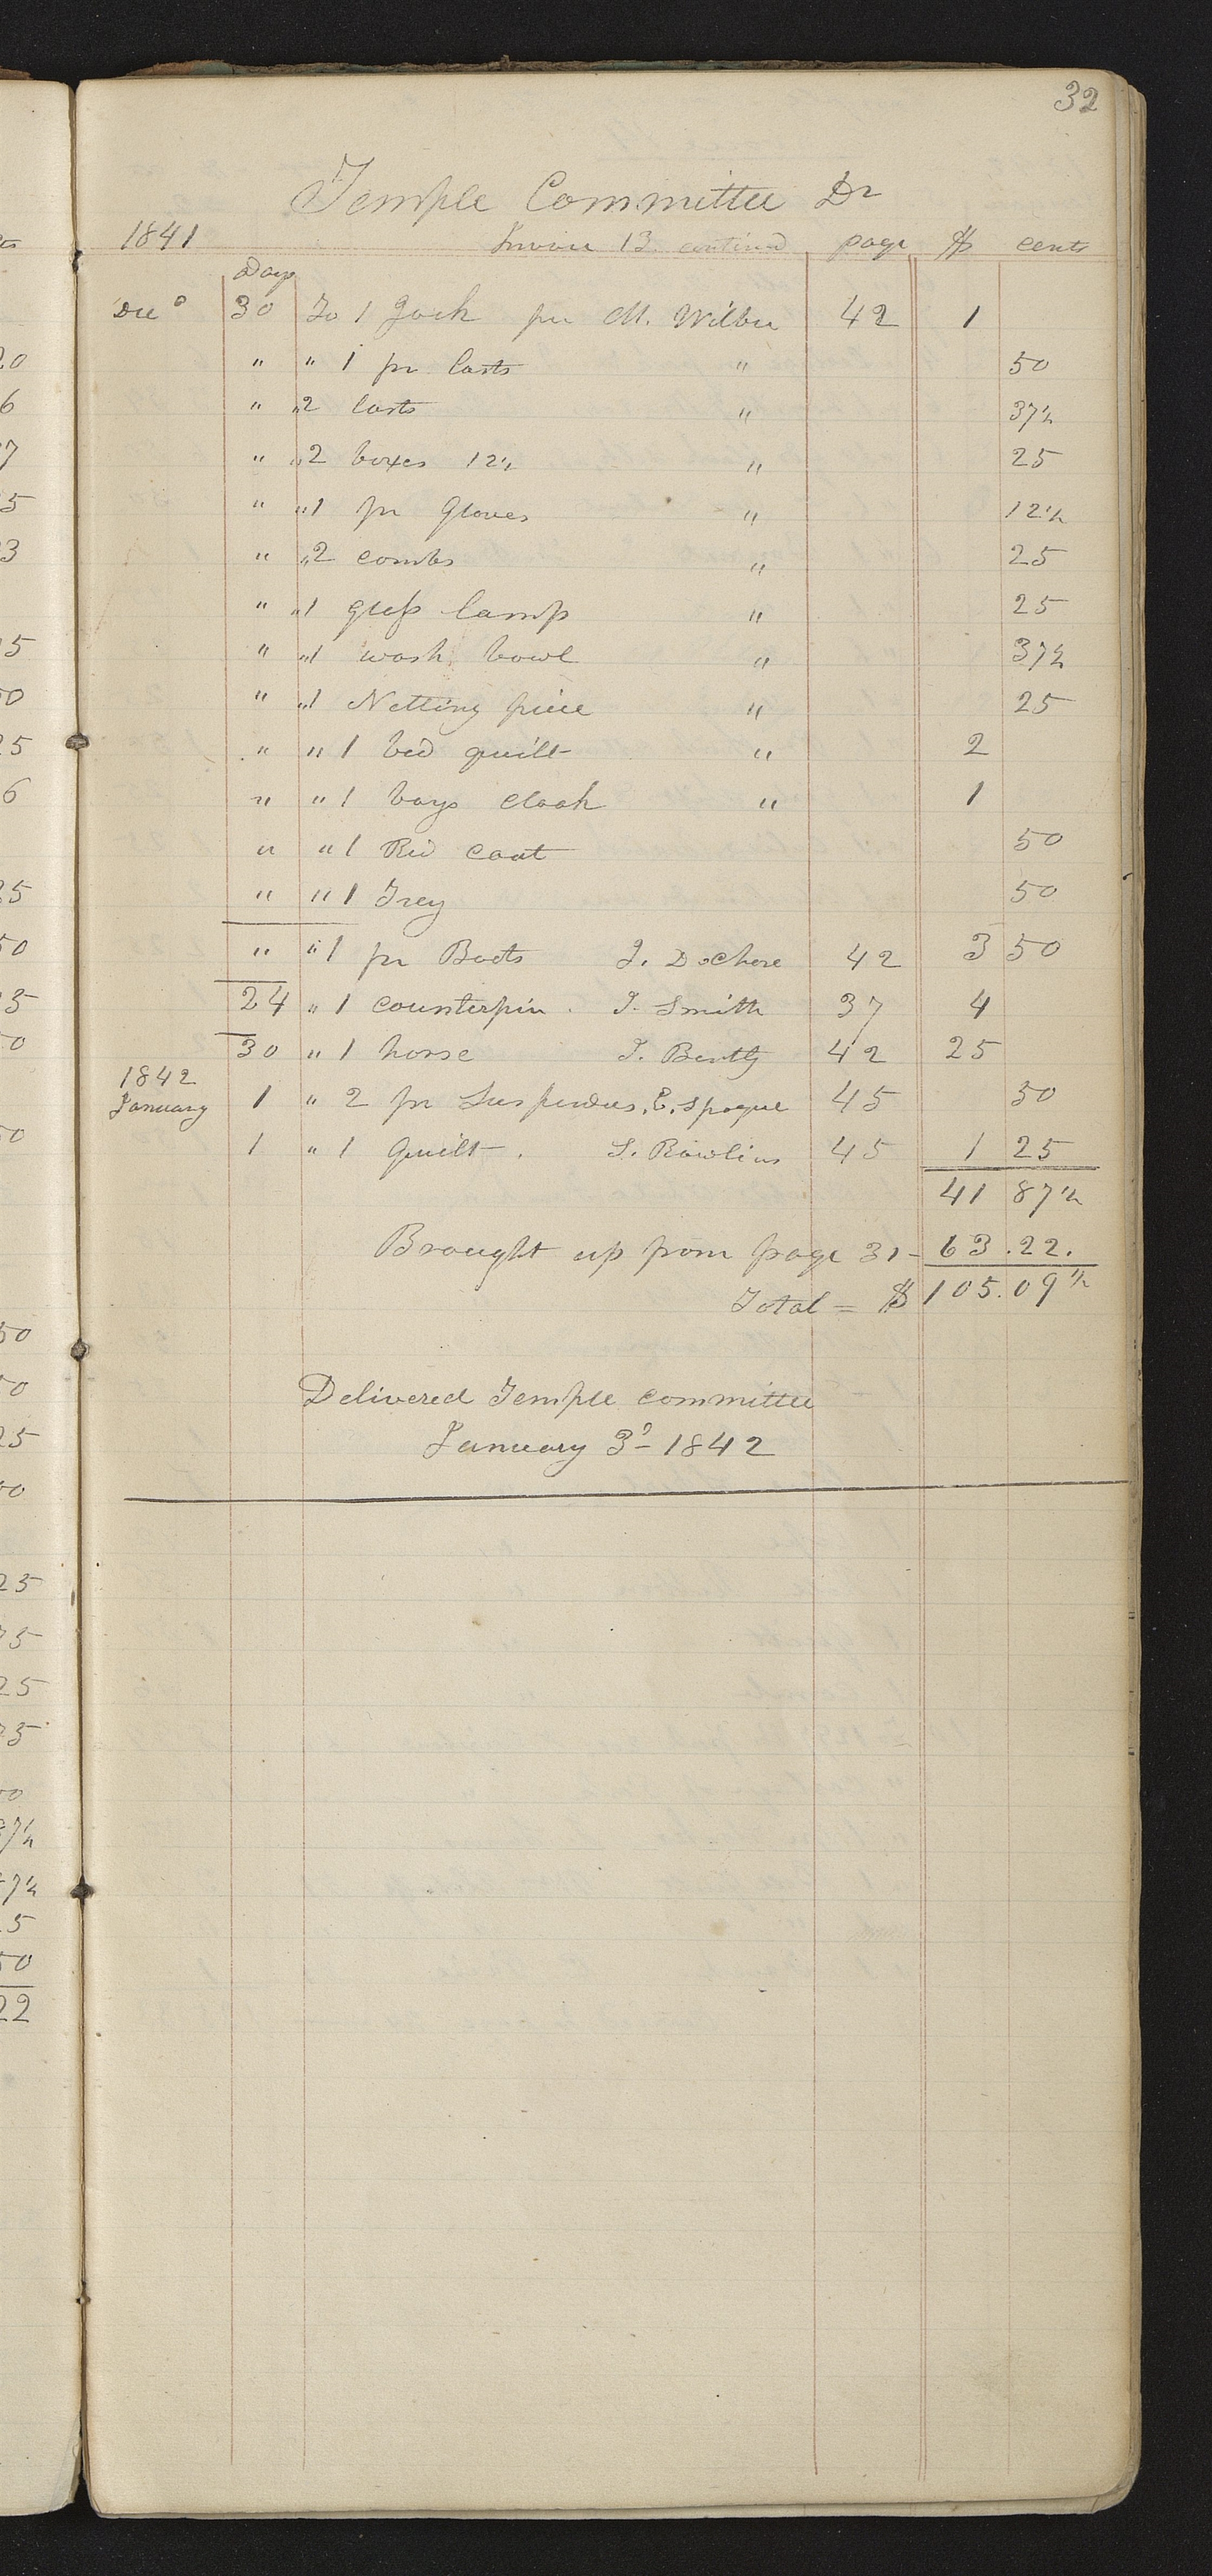 32
Temple Committee Dr
1841 Invoice 13 continued page $ cents
Day
Dec 30 To 1 Jack per M. Wilber 42 1
" " 1 pr lasts " 50
" " 2 lasts " 37½
" " 2 boxes 12½ " 25
" " 1 pr Gloves " 12½
" " 2 combs " 25
" " 1 glass lamp " 25
" " 1 wash bowl " 37½
" " 1 Netting piece " 25
" " 1 bed quilt " 2
" " 1 boys cloak " 1
" " 1 Red coat 50
" " 1 Grey 50
" " 1 pr Boots J. 42 3 50
24 " 1 counterpin. J. Smith 37 4
30 " 1 horse J. 42 25
1842
January 1 " 2 pr Suspenders, E. Sprague 45 50
1 " 1 Quilt. S. Rawlins 45 1 25
41 87½
Brought up from page 31 - 63.22.
Total = $ 105.09½
Delivered Temple committee
January 3d - 1842
20
6
7
5
3
5
50
25
6
25
50
50
50
50
25
50
25
75
25
75
50
87½
5
50
22